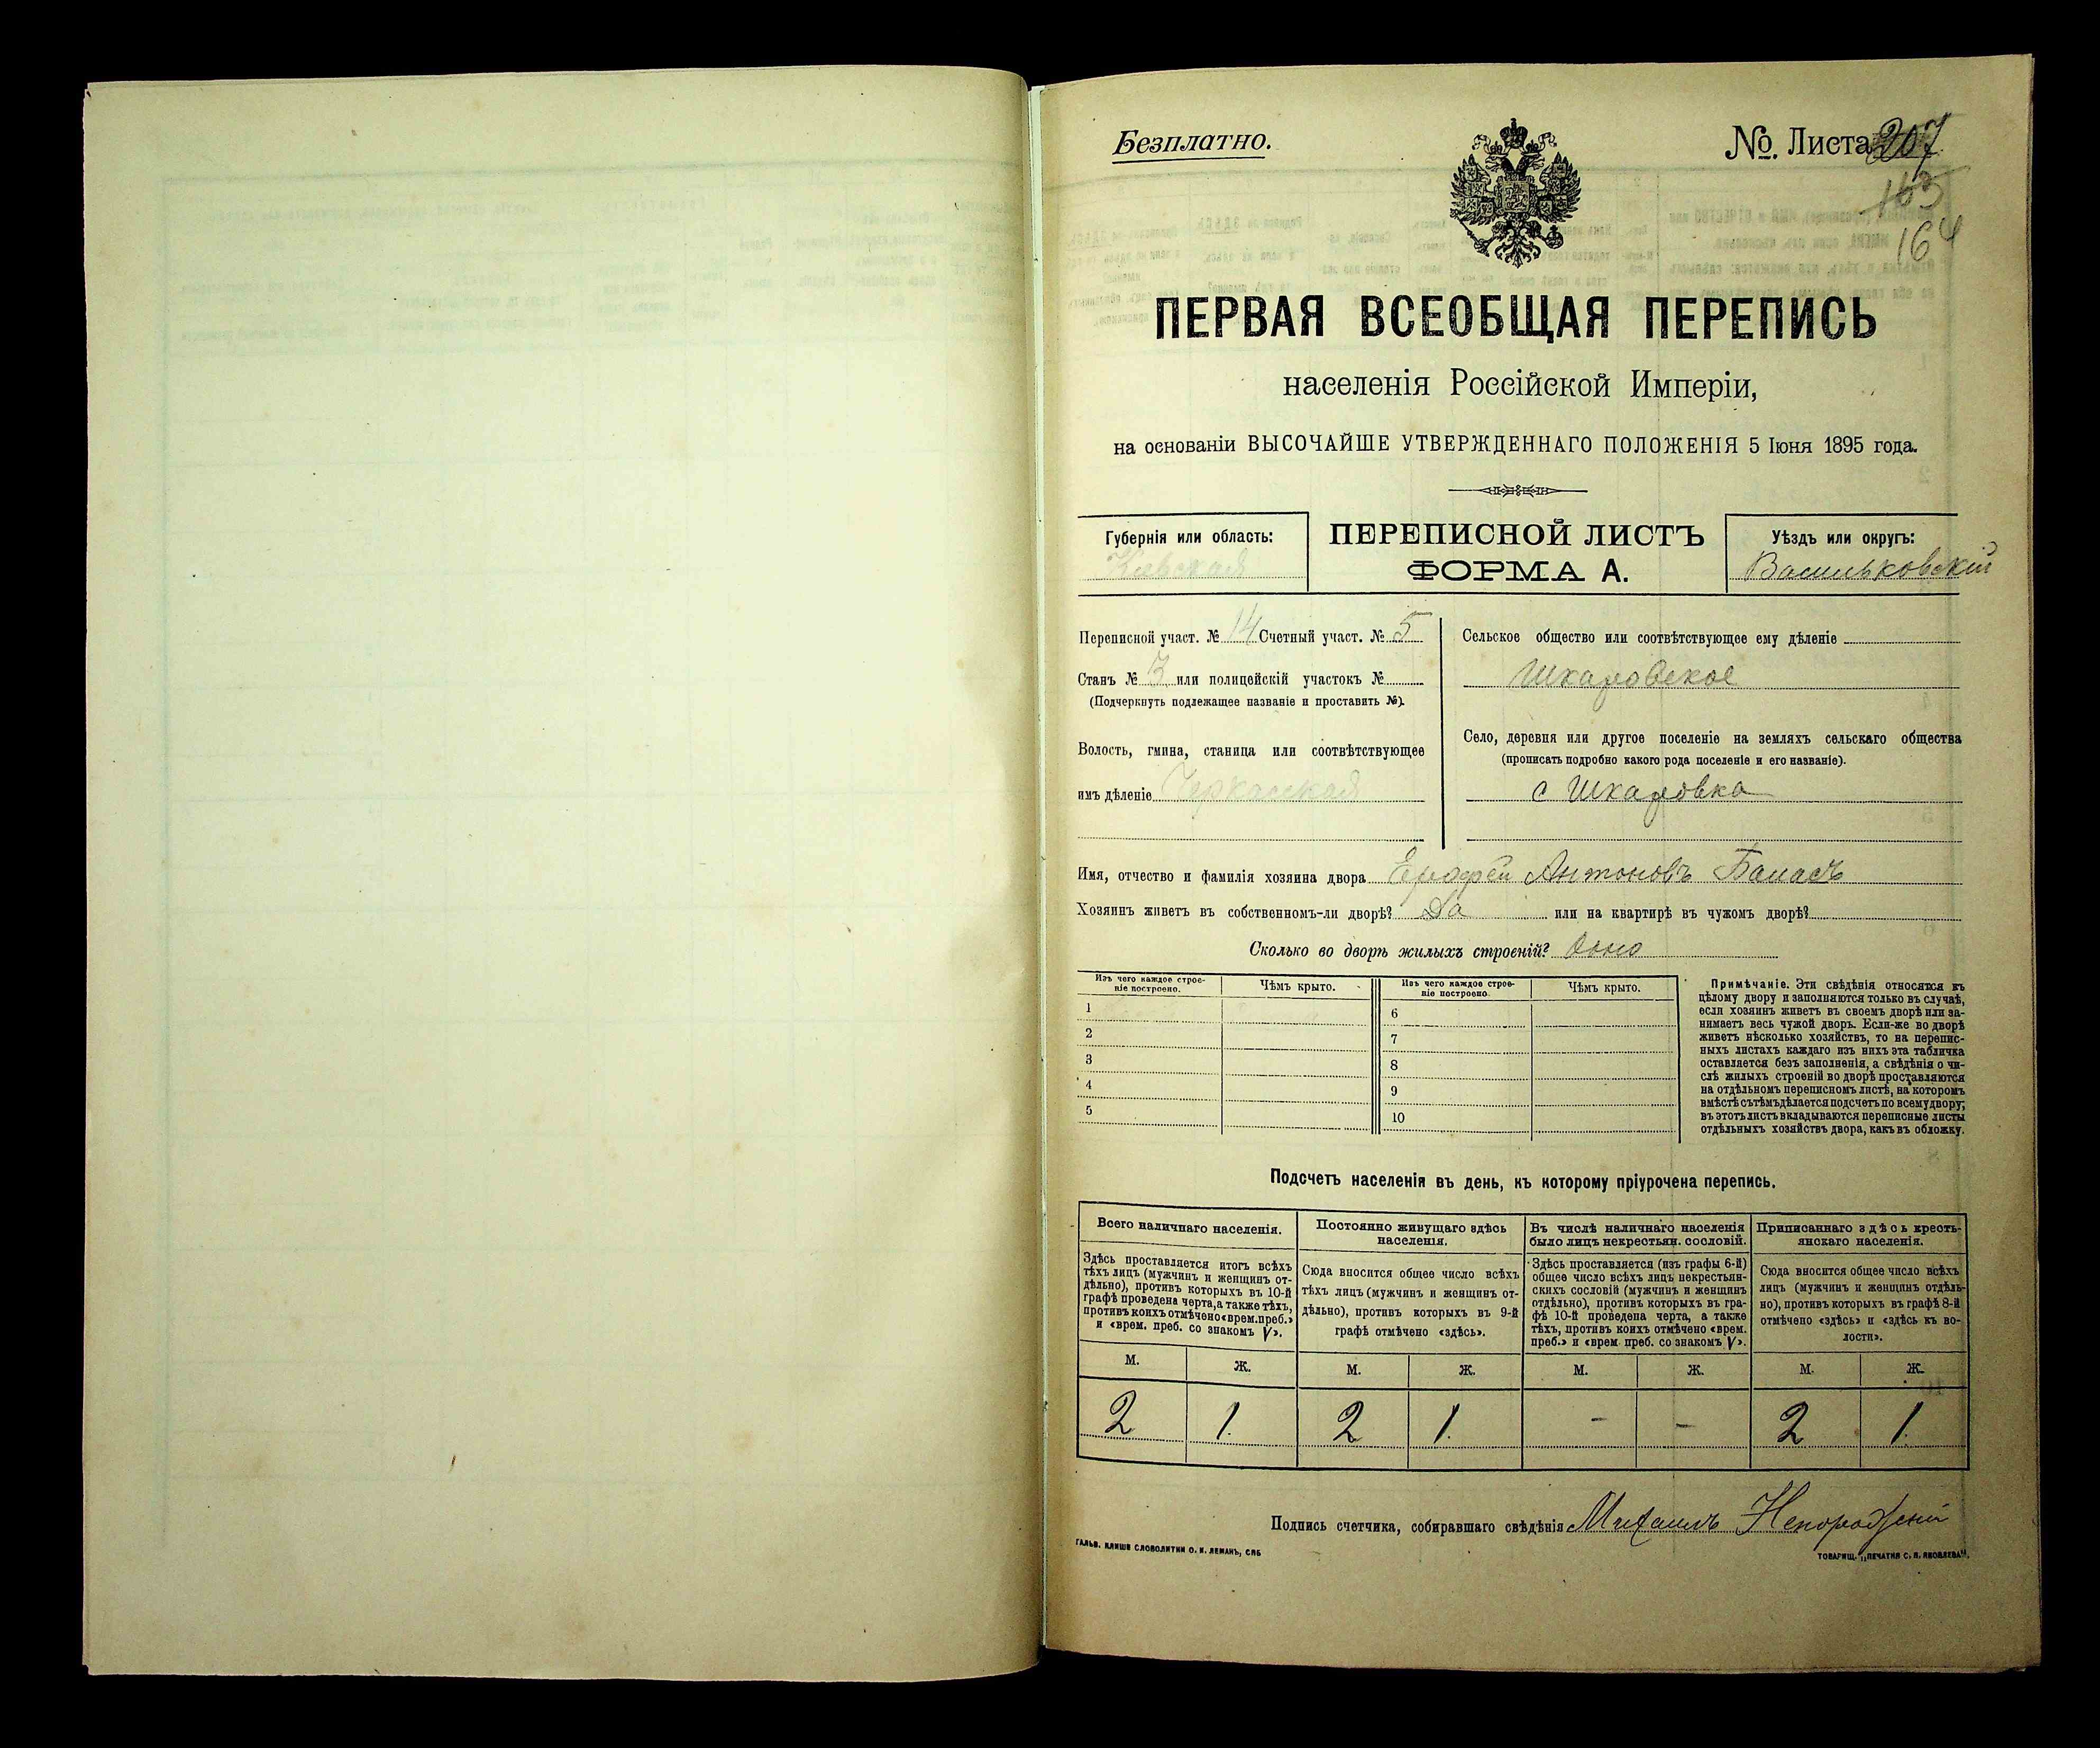 Безплатно.
№. Листа 207
163
164
ПЕРВАЯ ВСЕОБЩАЯ ПЕРЕПИСЬ
населенія Россійской Имперіи,
на основаніи ВЫСОЧАЙШЕ УТВЕРЖДЕННАГО ПОЛОЖЕНІЯ 5 Іюня 1895 года.
Губернія или область:
Кіевская
ПЕРЕПИСНОЙ ЛИСТЪ
ФОРМА А.
Уѣздъ или округъ:
Васильковскій
Переписной участ. № 14 Счетный участ. № 5
Станъ № 3 или полицейскій участокъ №
(Подчеркнуть подлежащее названіе и проставить №).
Волость, гмина, станица или соотвѣтствующее
имъ дѣленіе Черкасская
Сельское общество или соотвѣтствующее ему дѣленіе
Шкаровское
Село, деревня или другое поселеніе на земляхъ сельскаго общества
(прописать подробно какого рода поселеніе и его названіе).
с Шкаровка
Имя, отчество и фамилія хозяина двора Ерофей Антоновъ
Хозяинъ живетъ въ собственномъ-ли дворѣ? Да или на квартирѣ въ чужомъ дворѣ?
Сколько во дворѣ жилыхъ строеній? Одно
Изъ чего каждое строе-
ніе построено.
Чѣмъ крыто.
1
2
3
4
5
Изъ чего каждое строе-
ніе построено.
Чѣмъ крыто.
6
7
8
9
10
Примѣчаніе. Эти свѣдѣнія относятся къ
цѣлому двору и заполняются только въ случаѣ,
если хозяинъ живетъ въ своемъ дворѣ или за-
нимаетъ весь чужой дворъ. Если-же во дворѣ
живетъ нѣсколько хозяйствъ, то на перепис-
ныхъ листахъ каждаго изъ нихъ эта табличка
оставляется безъ заполненія, а свѣдѣнія о чи-
слѣ жилыхъ строеній во дворѣ проставляются
на отдѣльномъ переписномъ листѣ, на которомъ
вмѣстѣ съ тѣмъ дѣлается подсчетъ по всему двору;
въ этотъ листъ вкладываются переписные листы
отдѣльныхъ хозяйствъ двора, какъ въ обложку.
Подсчетъ населенія въ день, къ которому пріурочена перепись.
Всего наличнаго населенія.
Здѣсь проставляется итогъ всѣхъ
тѣхъ лицъ (мужчинъ и женщинъ от-
дѣльно), противъ которыхъ въ 10-й
графѣ проведена черта, а также тѣхъ,
противъ коихъ отмѣчено «врем. преб.»
и «врем. преб. со знакомъ V».
Постоянно живущаго здѣсь
населенія.
Сюда вносится общее число всѣхъ
тѣхъ лицъ (мужчинъ и женщинъ от-
дѣльно), противъ которыхъ въ 9-й
графѣ отмѣчено «здѣсь».
Въ числѣ наличнаго населенія
было лицъ некрестьян. сословій.
Здѣсь проставляется (изъ графы 6-й)
общее число всѣхъ лицъ некрестьян-
скихъ сословій (мужчинъ и женщинъ
отдѣльно), противъ которыхъ въ гра-
фѣ 10-й проведена черта, а также
тѣхъ, противъ коихъ отмѣчено «врем.
преб.» и «врем. преб. со знакомъ V».
Приписаннаго здѣсь кресть-
янскаго населенія.
Сюда вносится общее число всѣхъ
лицъ (мужчинъ и женщинъ отдѣль-
но), противъ которыхъ въ графѣ 8-й
отмѣчено «здѣсь» и «здѣсь къ во-
лости».
М. Ж. М. Ж. М. Ж. М. Ж.
2 1. 2 1. - - 2 1.
Подпись счетчика, собиравшаго свѣдѣнія Михаилъ
ГАЛЬВ. КЛИШЕ СЛОВОЛИТНИ О. И. ЛЕМАНЪ, СПБ
ТОВАРИЩ. „ПЕЧАТНЯ С. П. ЯКОВЛЕВА“.